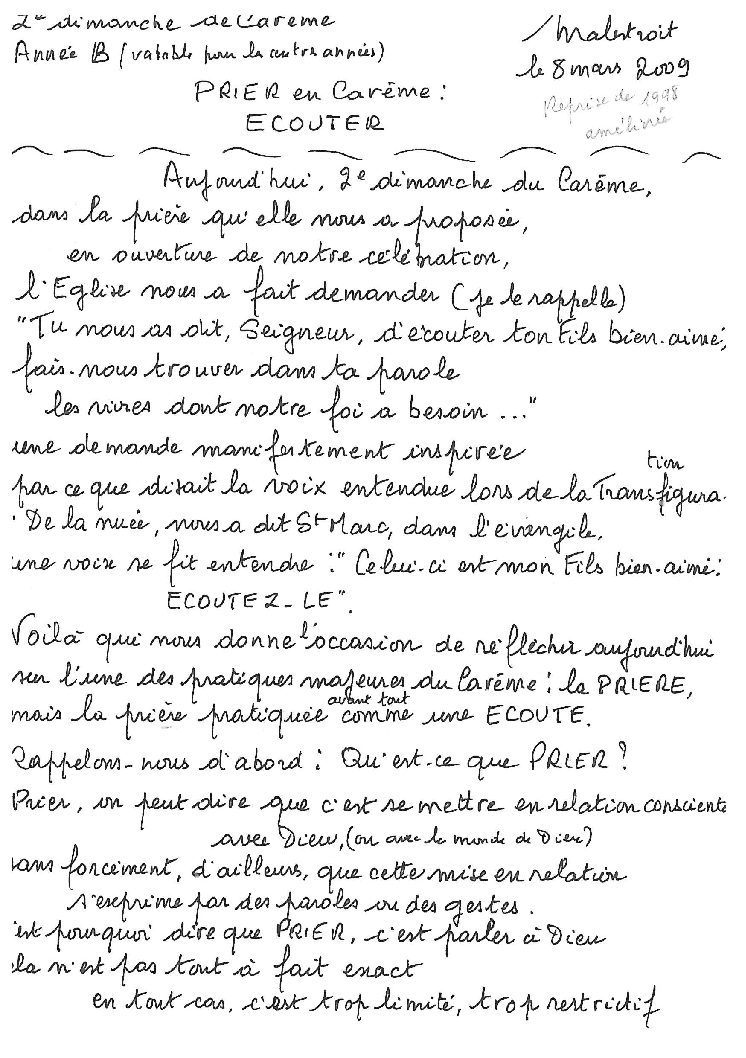 2e dimanche de Carême
Année B (valable pour les autres années)
Malestroit
le 8 mars 2009
Reprise de 1998
améliorée
PRIER en Carême :
ECOUTER
Aujourd'hui, 2e dimanche du Carême,
dans la prière qu'elle nous a proposée,
en ouverture de notre célébration,
l'Eglise nous a fait demander (je le rappelle)
"Tu nous as dit, Seigneur, d'écouter ton Fils bien-aimé;
fais-nous trouver dans ta parole
les vivres dont notre foi a besoin ..."
une demande manifestement inspirée
par ce que disait la voix entendue lors de la Transfigura-
tion
"De la nuée, nous a dit St Marc, dans l'évangile,
une voix se fit entendre : "Celui-ci est mon Fils bien-aimé:
ECOUTEZ-LE".
Voilà qui nous donne l'occasion de réfléchir aujourd'hui
sur l'une des pratiques majeures du Carême : la PRIERE,
mais la prière pratiquée avant tout comme une ECOUTE.
Rappelons-nous d'abord : Qu'est-ce que PRIER ?
Prier, on peut dire que c'est se mettre en relation consciente
avec Dieu, (ou avec le monde de Dieu)
sans forcément, d'ailleurs, que cette mise en relation
s'exprime par des paroles ou des gestes.
'est pourquoi dire que PRIER, c'est parler à Dieu
ela n'est pas tout à fait exact
en tout cas, c'est trop limité, trop restrictif